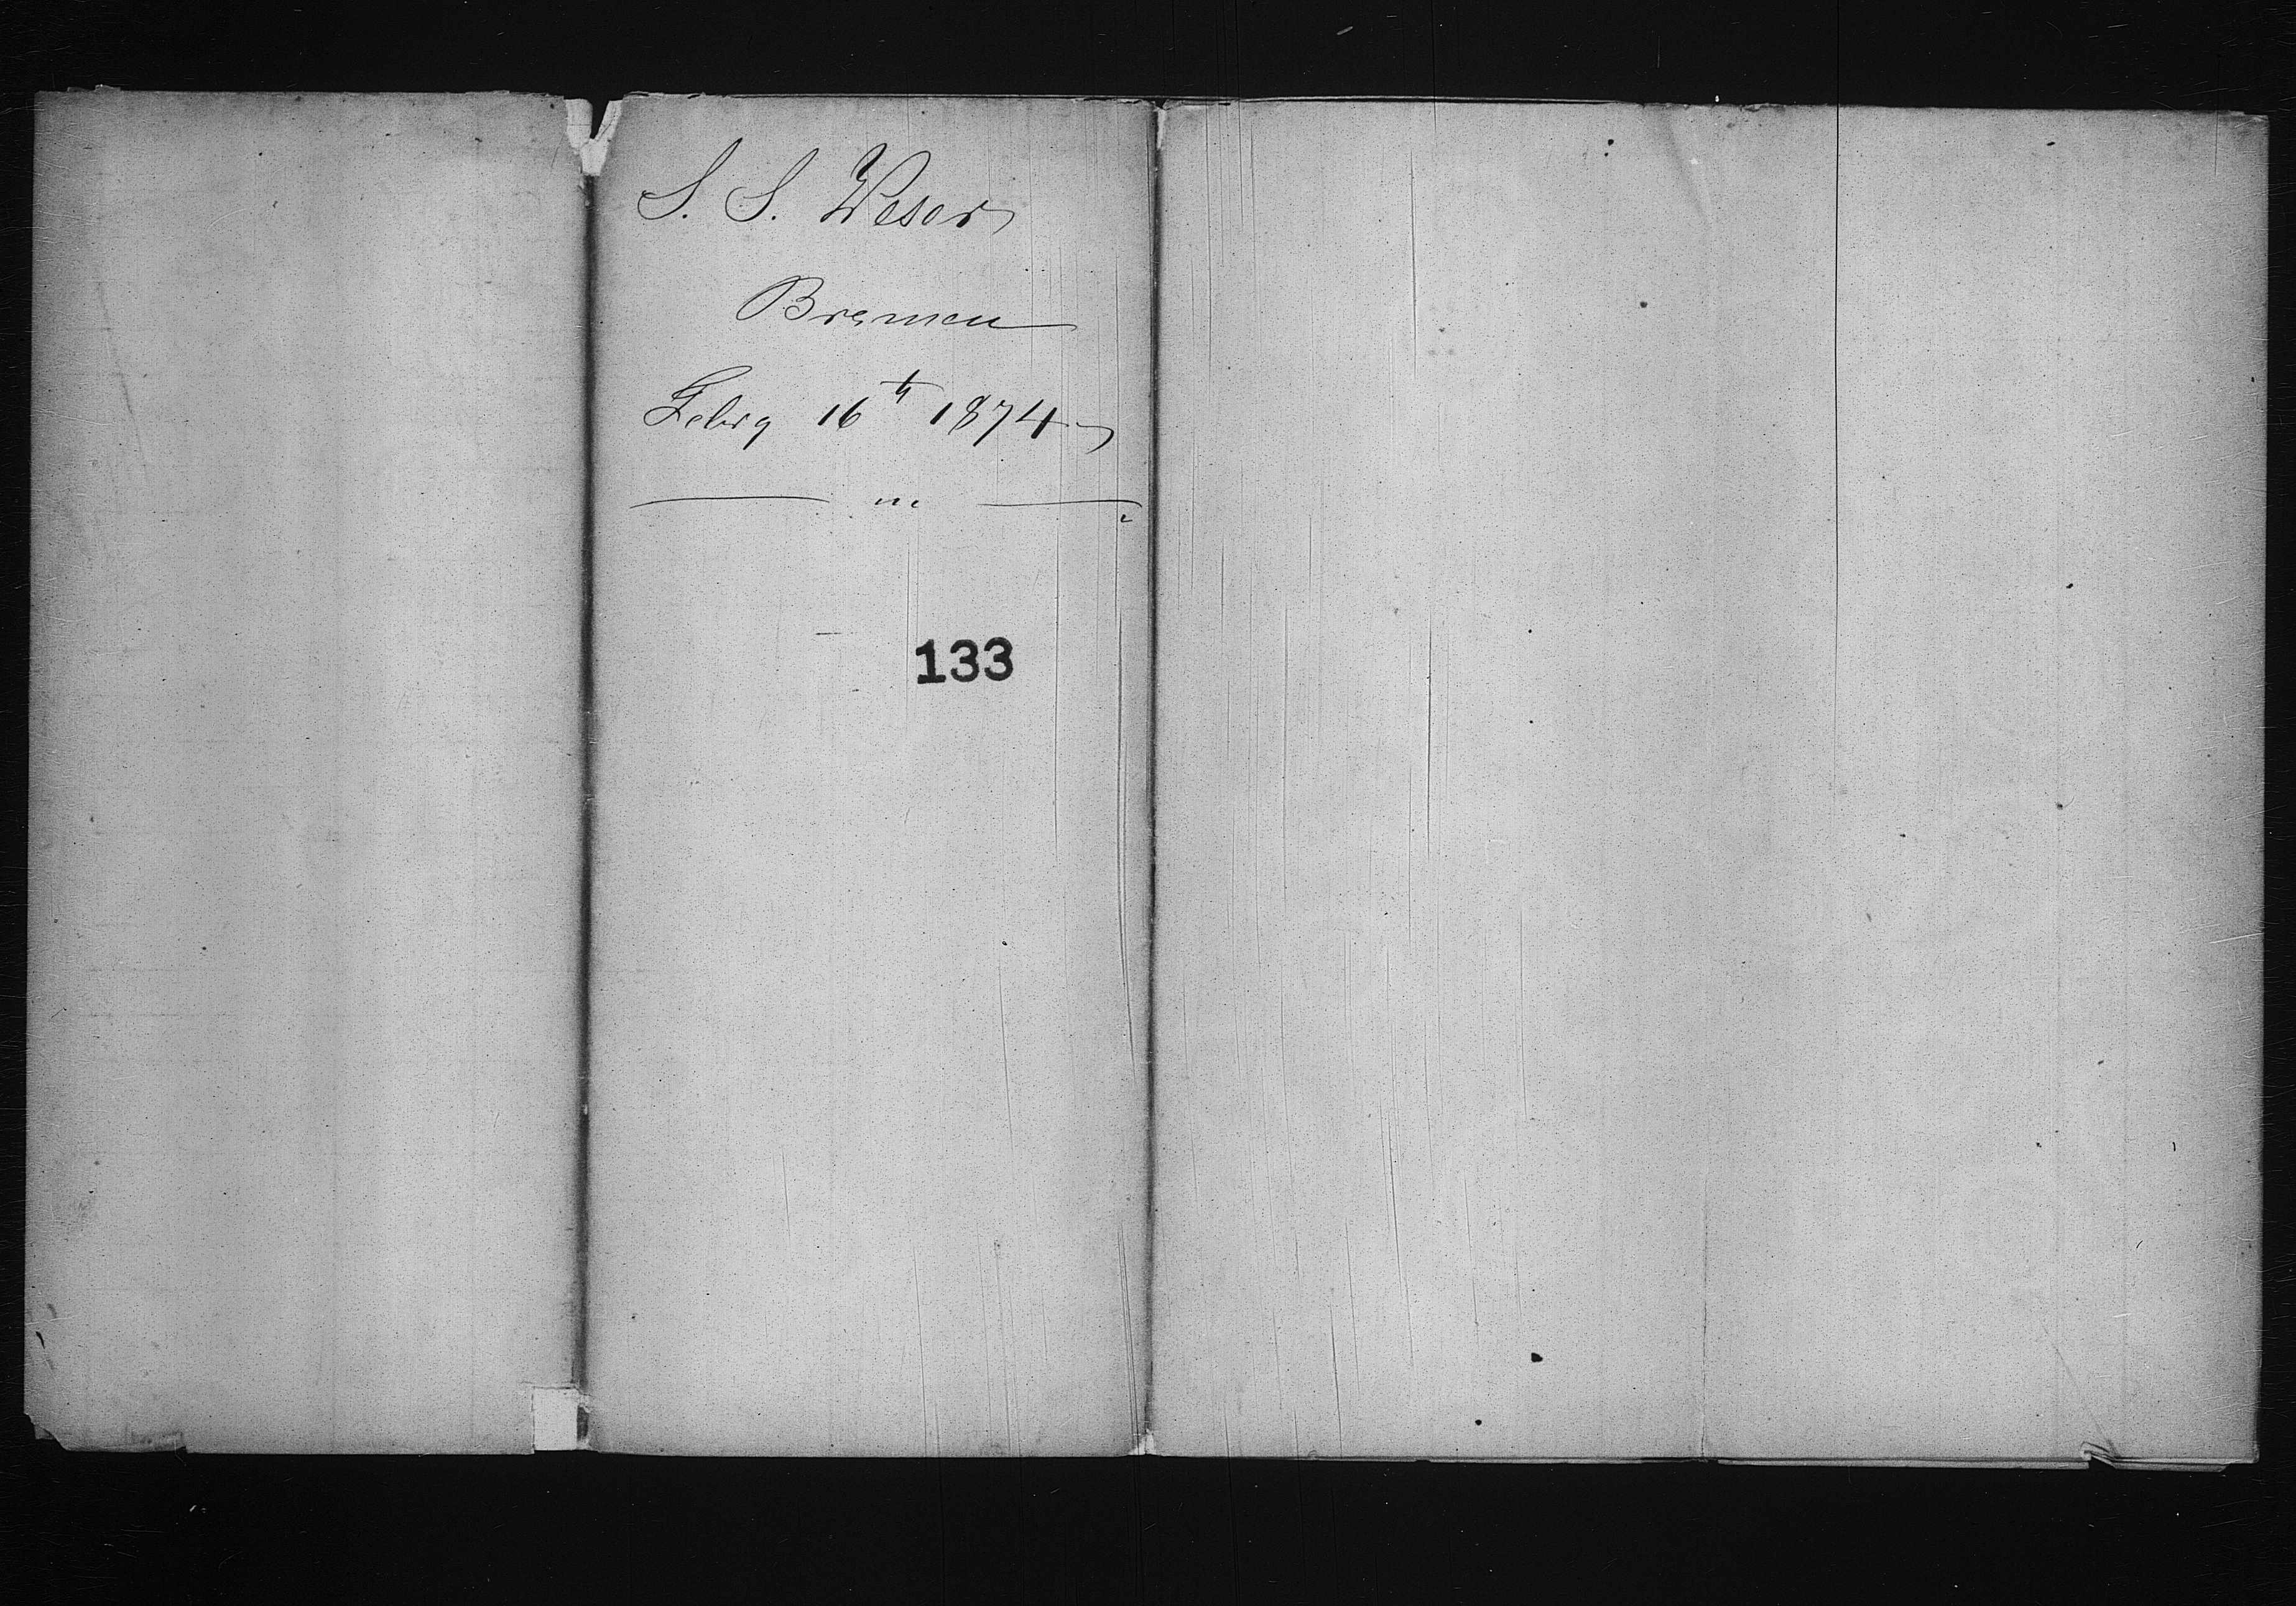 S. S. Weser
Bremen
Febry 16th 1874
133